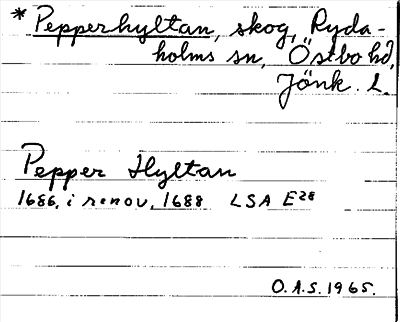 * Pepperhyltan, skog, Ryda-
holms sn, Östbo hd,
Jönk. l.
Pepper Hyltan
1686, i renov. 1688 LSA E28
O.A.S. 1965.